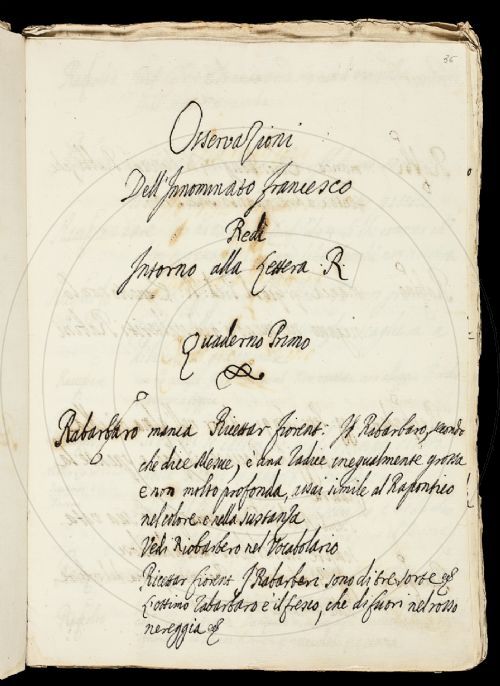 36
Osservazioni
Dell'Innominato Francesco
Redi
Intorno alla Lettera R
Quaderno Primo
Rabarbaro manca Ricettar fiorent: Il Rabarbaro, secondo
che dice Mesue, è una radice inegualmente grossa
e non molto profonda, assai simile al Rapontico
nel colore e nella sustanza
Vedi Riobarbero nel Vocabolario
Ricettar fiorent I Rabarberi sono di tre sorte &
L'ottimo rabarbaro è il fresco, che di fuori nel rosso
nereggia &